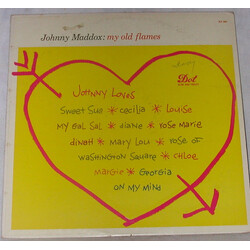 Johnny Maddox: my old flames
Dot
Johnny Loves
Sweet Sue * cecilia * Louise
My Gal Sal * diane * rose marie
dinah * Mary Lou * rose of
washington square * chloe
margie * Georgia
on my mind